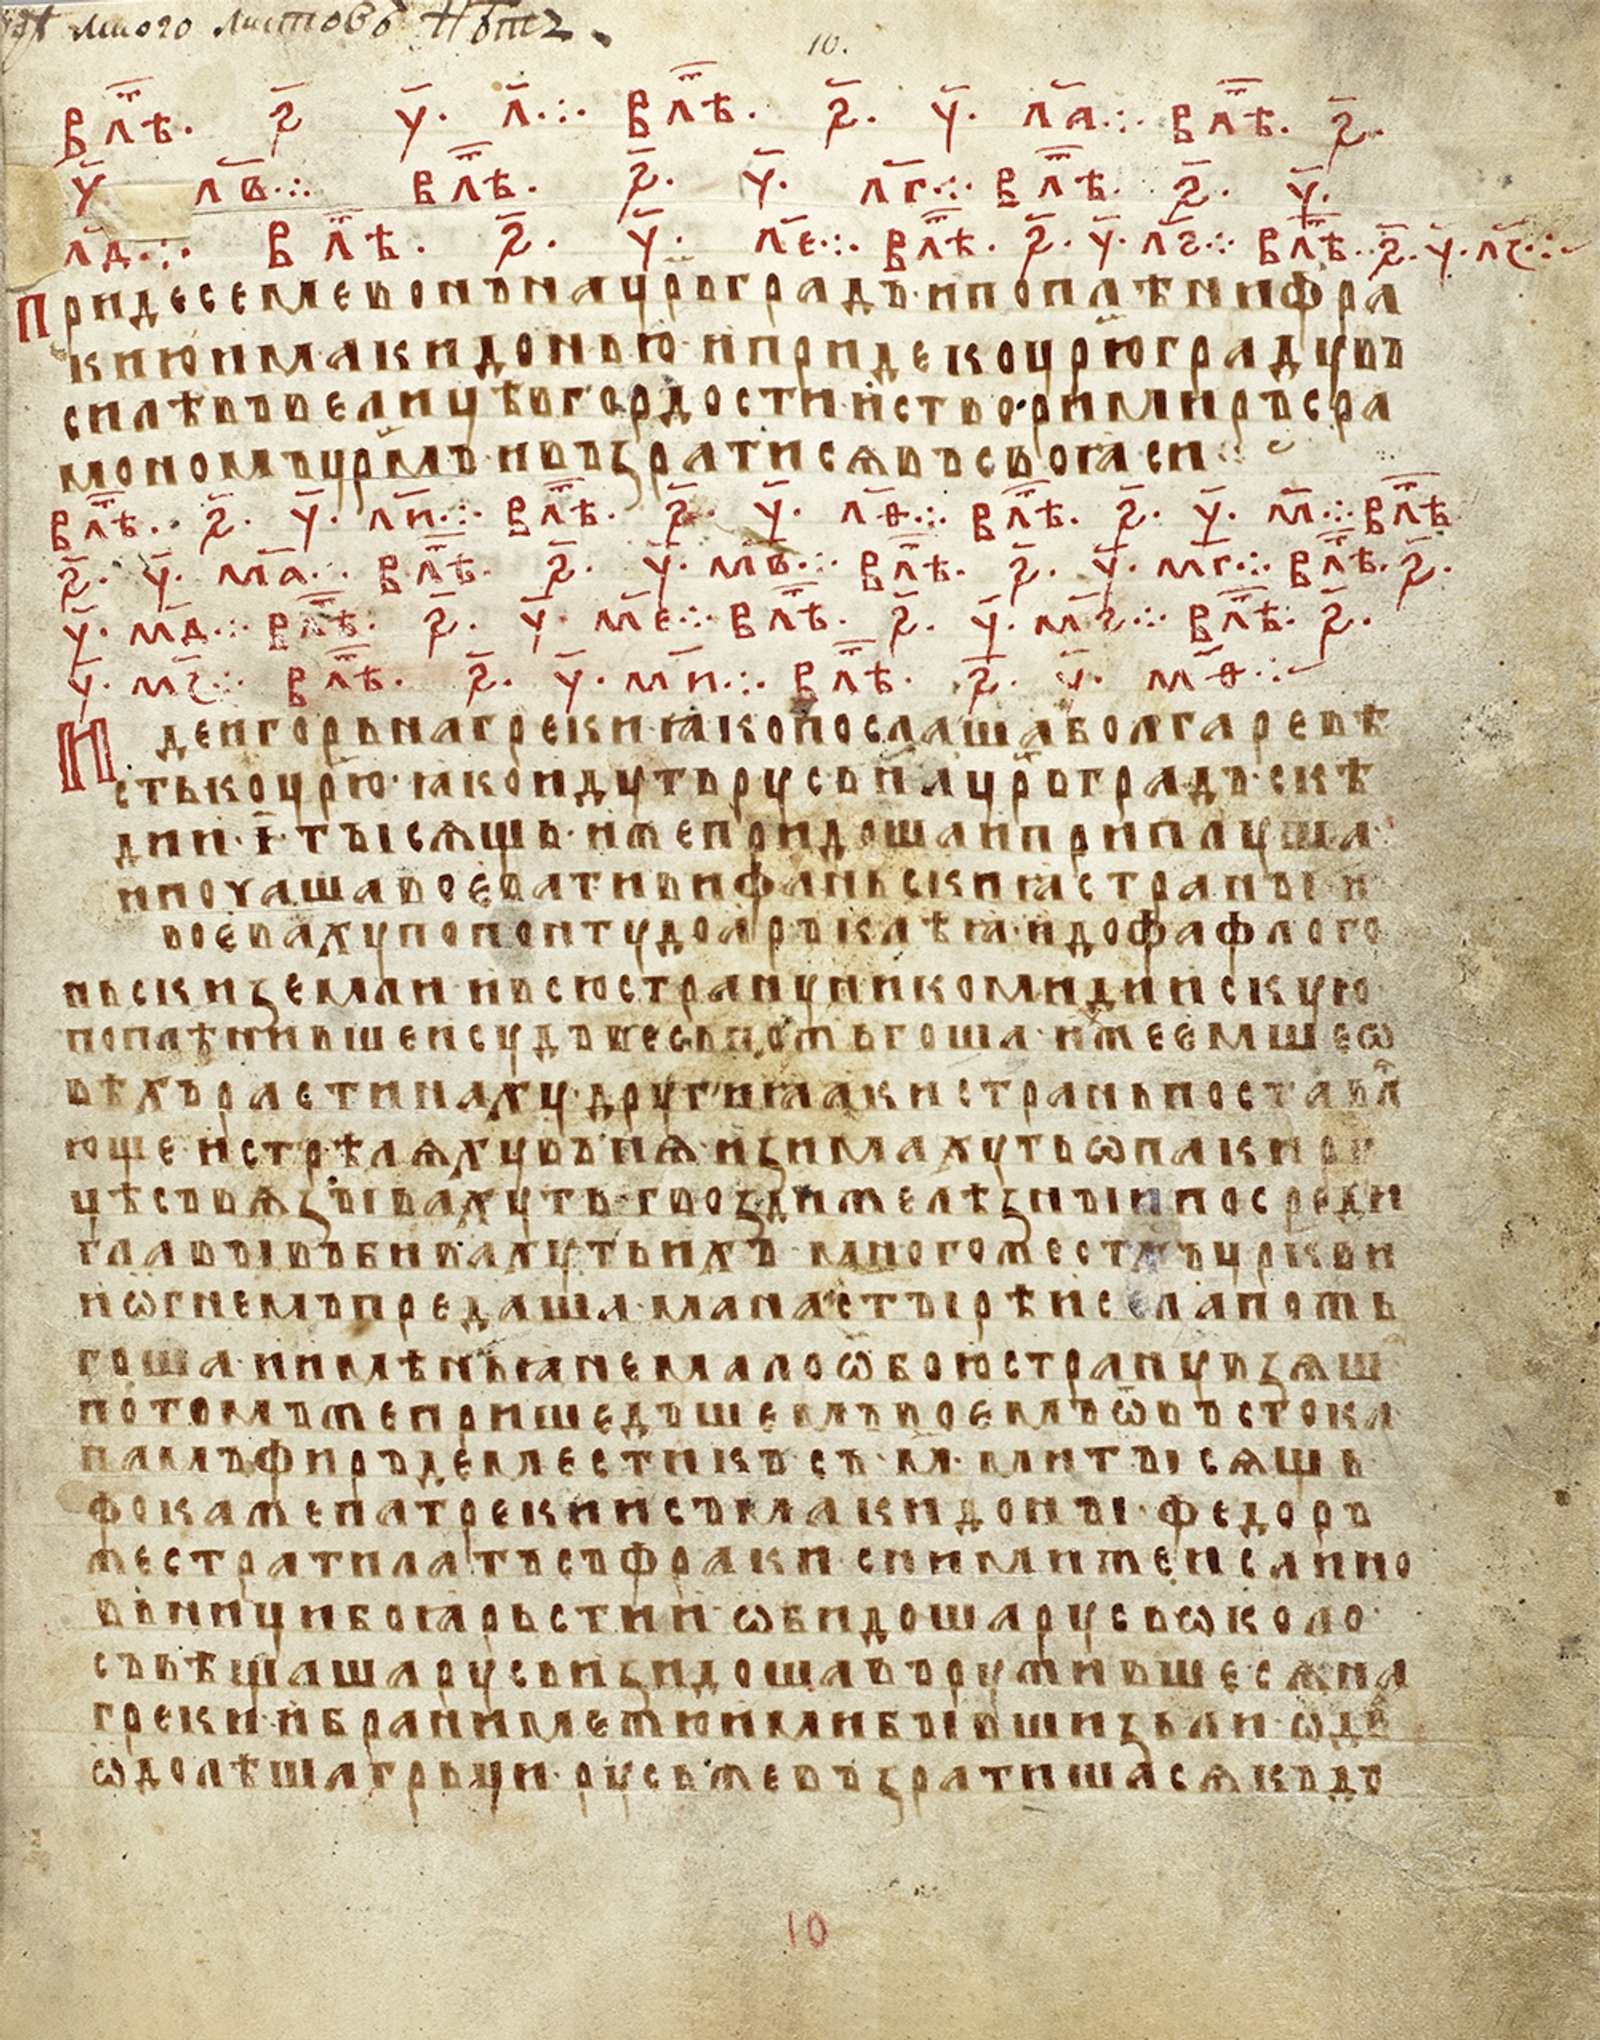 много листовъ Нѣтъ.
10.
В лⷮѣ. ҂ѕ҃ у҃. л҃ ⁘ В лⷮѣ. ҂ѕ҃. у҃. л҃а ⁘ В лⷮѣ. ҂ѕ҃.
у҃ л҃в ⁘ В лⷮѣ. ҂ѕ҃. у҃. л҃г ⁘ В лⷮѣ. ҂ѕ҃. у҃.
л҃д ⁘ В лⷮѣ. ҂ѕ҃. у҃. л҃е ⁘ В лⷮѣ. ҂ѕ҃. у҃. л҃ѕ ⁘ В лⷮѣ. ҂ѕ҃. у҃. л҃з ⁘
Придесемевонънацр҃ьградъ·ипоплѣнифра
киюимакидонью·ипридекоцр҃юградувъ
силѣвъвелицѣвгордости·истворимиръсра
мономъцр҃мъ·ивъзратисѧвъсвоꙗси ⁘
В лⷮѣ. ҂ѕ҃. у҃. л҃и ⁘ В лⷮѣ. ҂ѕ҃. у҃. л҃ѳ ⁘ В лⷮѣ. ҂ѕ҃. у҃. м҃ ⁘ В лⷮѣ
҂ѕ҃. у҃. м҃а ⁘ В лⷮѣ. ҂ѕ҃. у҃. м҃в ⁘ В лⷮѣ. ҂ѕ҃. у҃. м҃г ⁘ В лⷮѣ. ҂ѕ҃.
у҃. м҃д ⁘ В лⷮѣ. ҂ѕ҃. у҃. м҃е ⁘ В лⷮѣ. ҂ѕ҃. у҃. м҃ѕ ⁘ В лⷮѣ. ҂ѕ҃.
у҃. м҃з ⁘ В лⷮѣ. ҂ѕ҃. у҃. м҃и ⁘ В лⷮѣ. ҂ѕ҃. у҃. м҃ѳ ⁘
Идеигорьнагрекиꙗкопослашаболгаревѣ
стькоцр҃ю·ꙗкоидутьрусьнацр҃ьградъ·скѣ
дии·і҃·тысѧщь·ижепридошаиприплуша·
ипочашавоевативифаньскиꙗстраны·и
воевахупопонтудоарѣклѣꙗ·идофафлого
ньскиземли·ивсюстрануникомидиискую
поплѣнившеисудъвесьпожьгоша·ижеемшеѡ
вѣхърастинаху·другиꙗакистраньпоставлⷶ
юще·истрѣлѧхувънѧ·изимахутьѡпакиру
цѣсъвѧзывахуть·гвоздижелѣзныипосреди
главывъбивахутьихъ·многожест҃хъцркви
иѡгнемъпредаша·манастырѣиселапожь
гоша·иимѣньꙗнемалоѡбоюстранувзѧш
потомъжепришедъшемъвоемъѿвъстока
памъфиръдеместикъсъ·м҃·митысѧщь
фокажепатрекиисъмакидоны·федоръ
жестратилатъсъфраки·снимижеисанно
вьницибоꙗрьстии·ѡбидошарусьѡколо·
съвѣщашарусьизидошавъружившесѧна
греки·ибранимежюимибывшизьли·ѡдва
ѡдолѣшагрьци·русьжевъзратишасѧкъдр
10